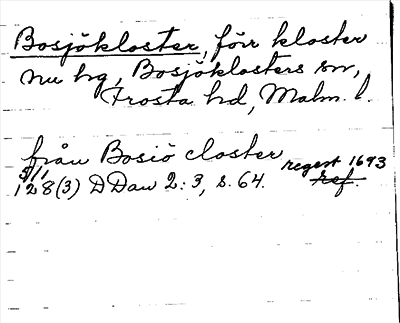 Bosjökloster, förr kloster
nu hg, Bosjöklosters sn,
Frosta hd, Malm. l.
från Bosiö closter
5/1 regest 1693
128(3) DDan 2:3, s. 64. ref.